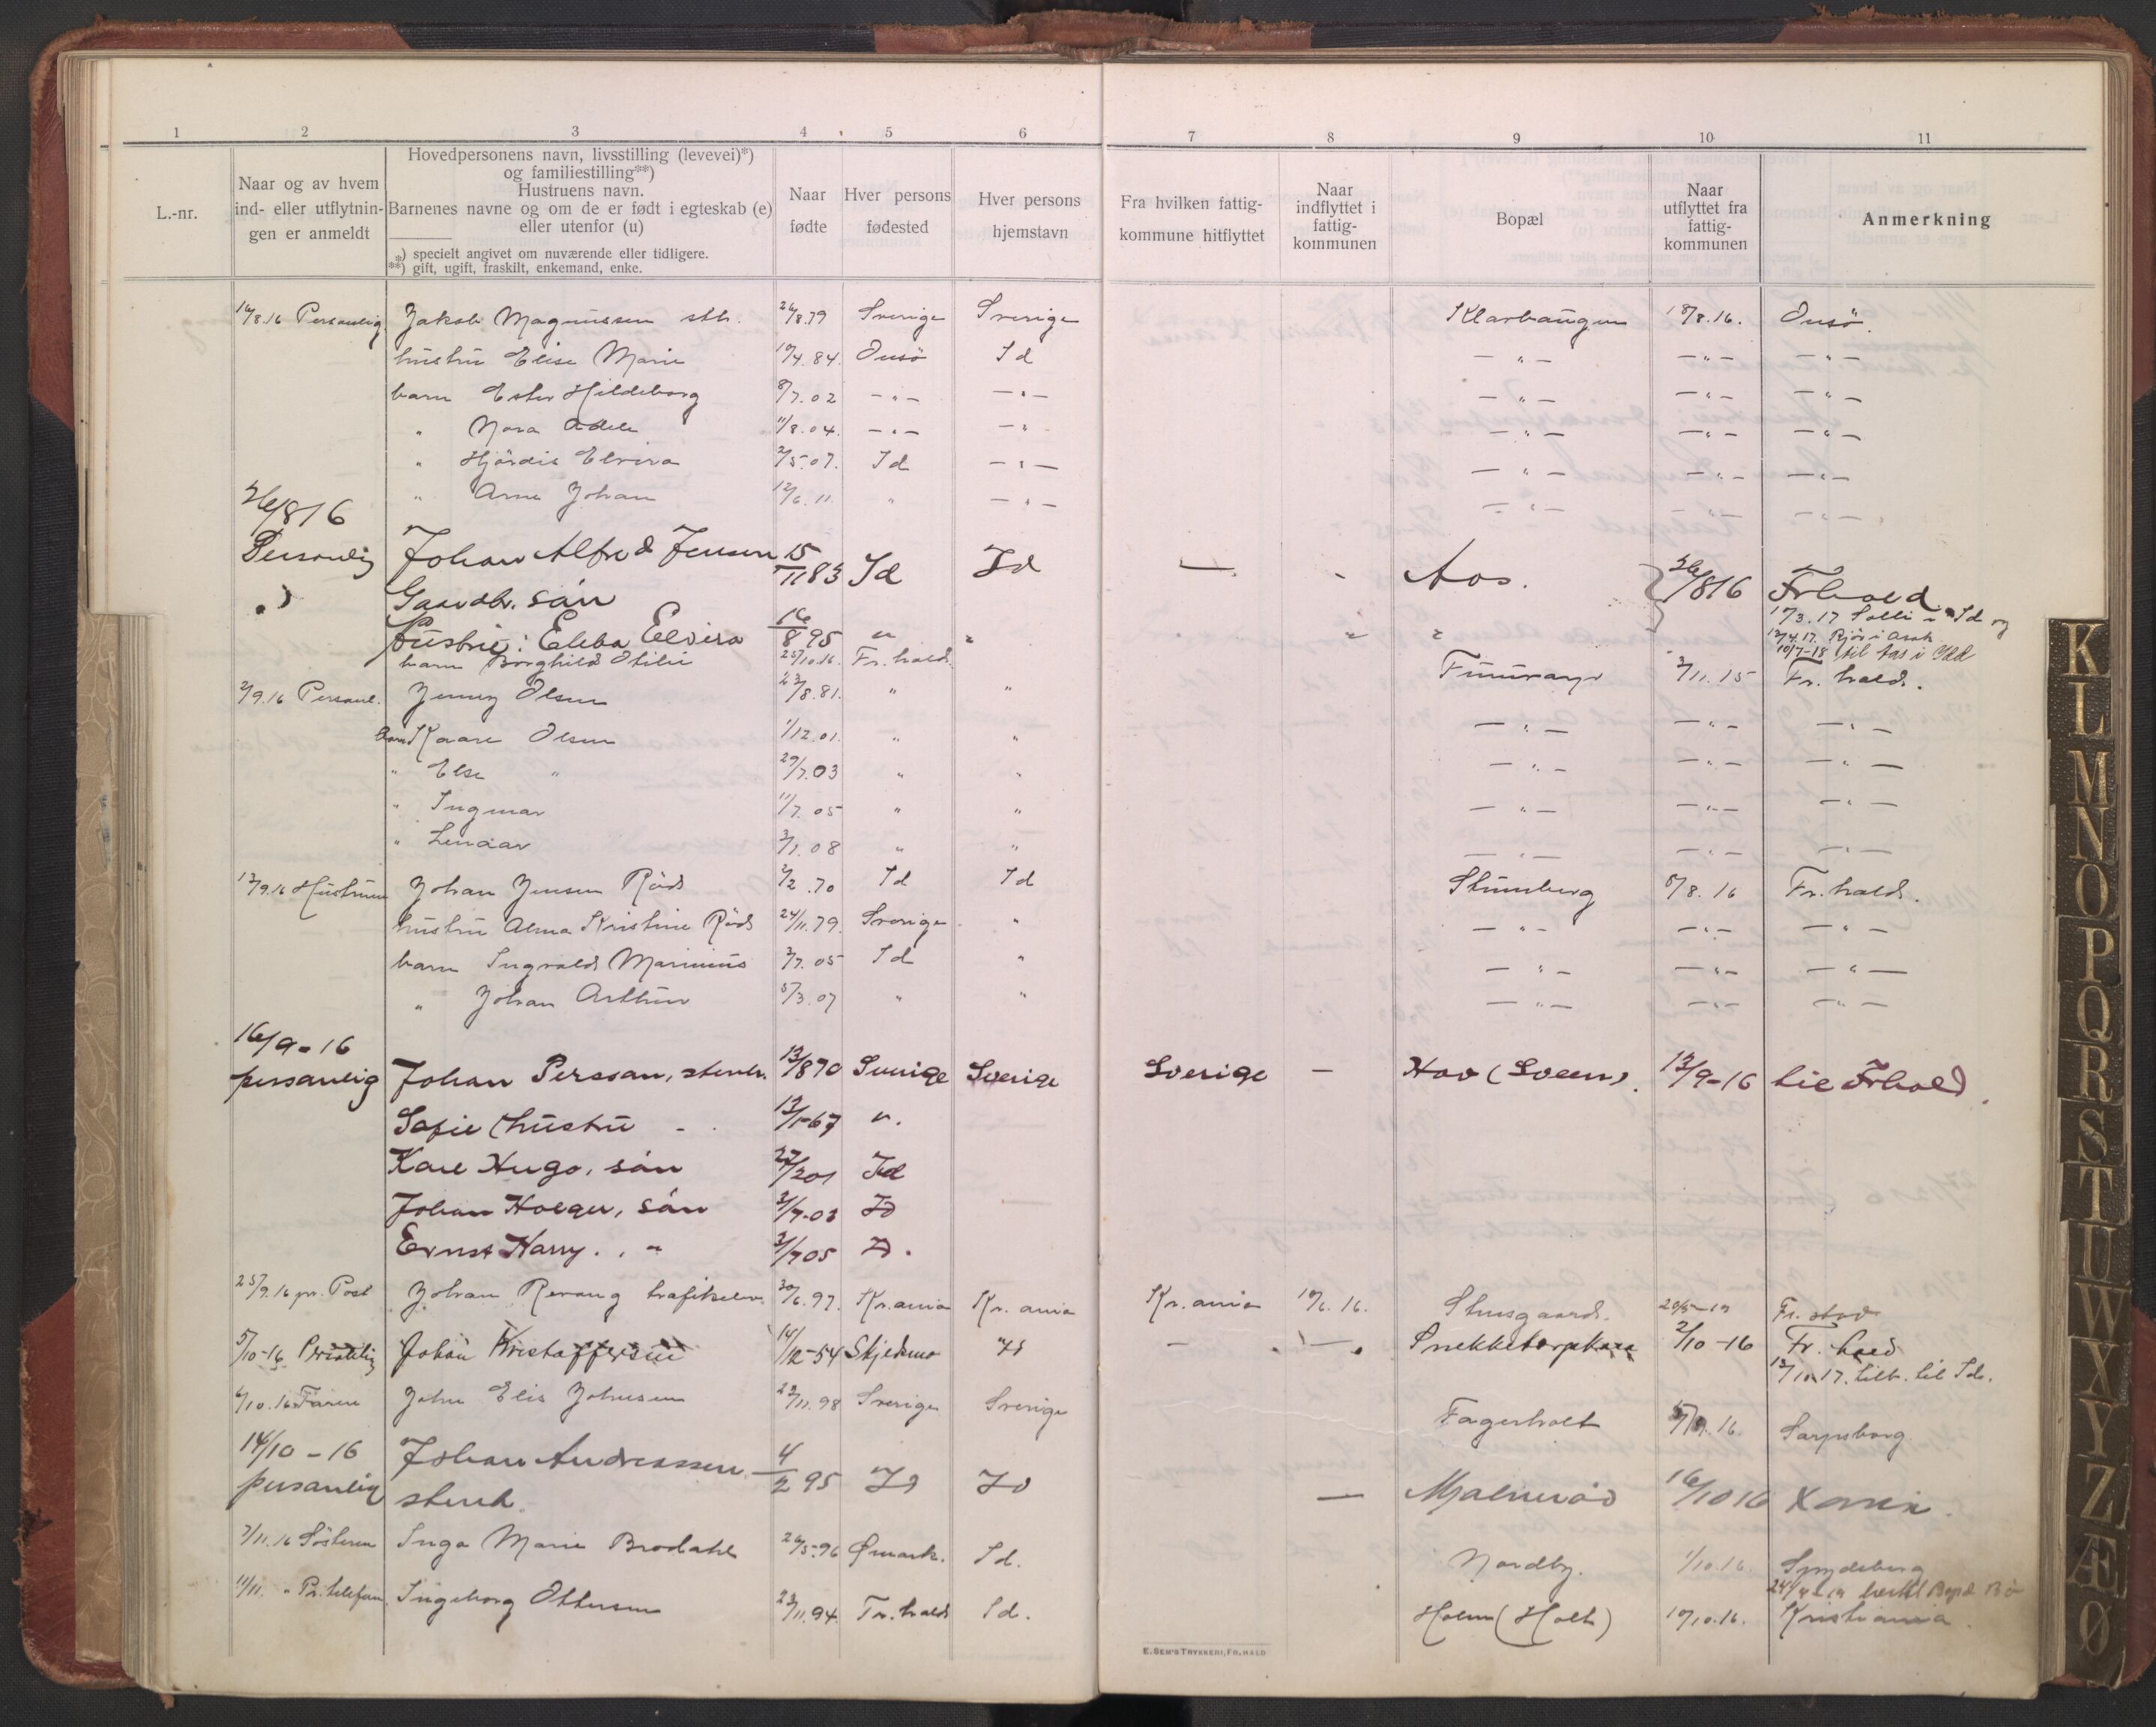 1 2 3 4 5 6 7 8 9 10 11
L.-nr.
Naar og av hvem
ind- eller utflytnin-
gen er anmeldt
Hovedpersonens navn, livsstilling (levevei)*)
og familiestilling**)
Hustruens navn.
Barnenes navne og om de er født i egteskab (e)
eller utenfor (u)
*) specielt angivet om nuværende eller tidligere.
**) gift, ugift, fraskilt, enkemand, enke.
Naar
fødte
Hver persons
fødested
Hver persons
hjemstavn
Fra hvilken fattig-
kommune hitflyttet
Naar
indflyttet i
fattig-
kommunen
Bopæl
Naar
utflyttet fra
fattig-
kommunen
Anmerkning
16/8.16 Personlig Jakob Magnussen sth. 26/8.79 Sverige Sverige Klarhaugen 18/8.16. Onsö.
hustru Elise Marie 19/4.84. Onsö Id — " — — " — — " —
barn Ester Hildeborg 8/7.02 — " — — " — — " — — " — — " —
" Nora Adele 11/8.04. — " — — " — " — — " — — " —
" Hjördis Elvira 2/5.07. Id — " — — " — — " — — " —
" Arne Johan 12/6.11. " — " — — " — — " — — " —
26/8 16
Personlig Johan Alfred Jensen 15/11 83 Id Id — - Aos. 26/8 16 Frhald
") Gaardbr. sön
17/3.17 Solli i Id og
Hustru: Eleba Elvira 16/8 95 " " " " 12/4.17. Rjör i Asak
10/7-18 til Aas i Idd
barn Borghild Otilie 25/10.16. Fr.hald.
2/9.16 Personl. Jenny Olsen 23/8.81. " " Fuurøre 3/11.15 Fr. hald.
Barn Kaare Olsen 1/12.01. " " — " — — " — — " —
" Else " 29/7.03 " " — " — — " — — " —
" Ingmar 11/7.05 " " — " — — " — — " —
" Leidar 3/1.08 " " — " — — " — — " —
13/9.16 Hustruen Johan Jensen Röds 2/2.70 Id Id Stumberg 8/8.16 Fr.hald.
hustru Alma Kristine Röds 24/11.79. Sverige " — " — — " — — " —
barn Ingvald Marinius 3/7.05 Id " — " — — " — — " —
" Johan Arthur 5/3.07 " " — " — — " — — " —
16/9-16
personlig Johan Persson, stenh. 13/8 70 Sverige Sverige Sverige — Hov (Sveen). 13/9-16 til Frhald.
Sofie (hustru 13/1-67 ".
Karl Hugo, sön 27/2 01 Id
Johan Holger, sön 3/7-03 Id
Ernst Harry. , " 3/7 05 Id.
25/9.16 pr. Post Johan Revaug trafikelev. 30/6.97. Kr.ania Kr. ania Kr.ania 19/6.16. Stusgaard. 20/5-19 Fr. stad
5/10-16 Personlig Johan Kristoffersen 14/12-54 Skjedsmo Id — — Snekketorpkasa 2/10-16 Fr. hald
12/10.17. tilb. til Id.
6/10.16 Faren John Elis Johnsen 22/11.98 Sverige Sverige Fagerholt 5/9.16. Sarpsborg
14/10-16
personlig Johan Andreassen 4/2 95 Id Id — Malmeröd 16/10 16 Kania.
stenh.
7/11.16 Söstren Inga Marie Brodahl 26/5.96 Ømark. Id. Nordby. 1/10.16. Spydeberg
11/11. " Pr. telefon. Ingeborg Ottersen 23/11.94. Fr.hald Id. Holm (Holt) 19/10.16. Kristiania.
E. SEM'S TRYKKERI, FR.HALD
K L M N O P Q R S T U W X Y Z Æ Ø